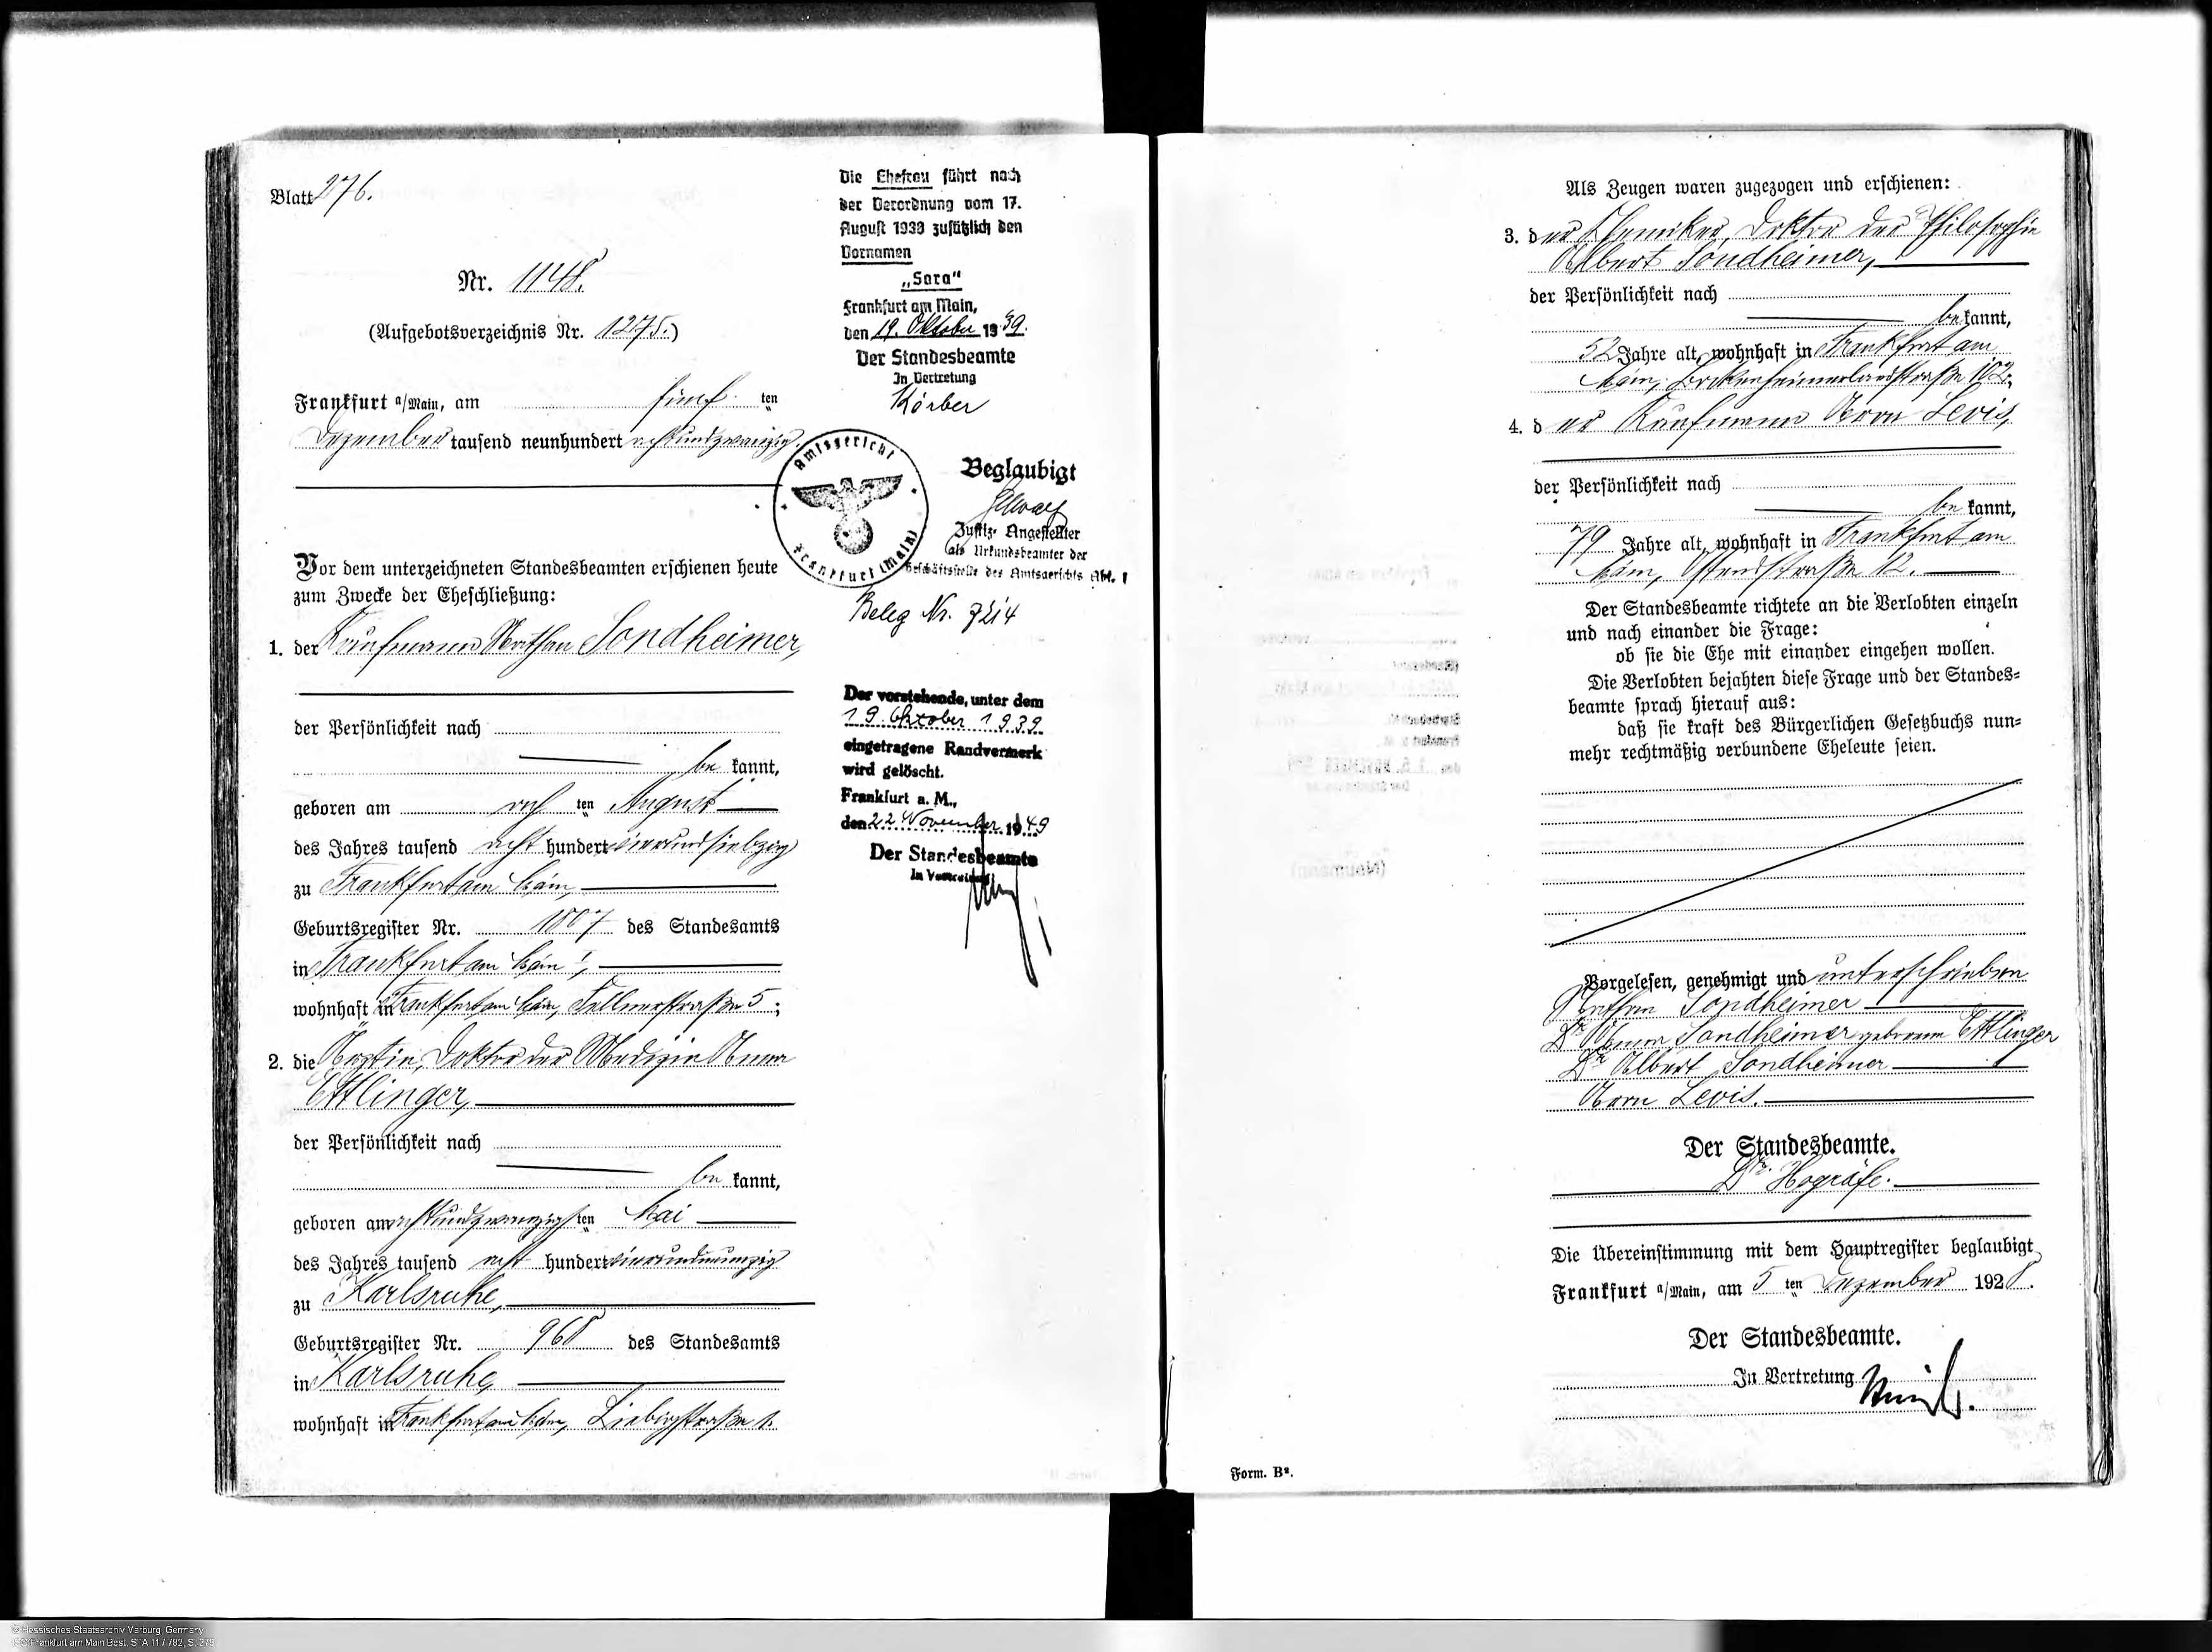 Blatt 276.
Nr. 1148.
(Aufgebotsverzeichnis Nr. 1275.)
Frankfurt a/Main, am fünf ten
Dezember tausend neunhundert achtundzwanzig.
Vor dem unterzeichneten Standesbeamten erschienen heute
zum Zwecke der Eheschließung:
1. der Kaufmann Nathan Sondheimer,
der Persönlichkeit nach
be kannt,
geboren am ach ten August
des Jahres tausend acht hundert vierundsiebzig
zu Frankfurt am Main,
Geburtsregister Nr. 1807 des Standesamts
in Frankfurt am Main I,
wohnhaft in Frankfurt am Main, Fellnerstraße 5;
2. die Ärztin, Doktor der Medizin Anna
Ettlinger,
der Persönlichkeit nach
be kannt,
geboren am achtundzwanzigs ten Mai
des Jahres tausend acht hundert vierundneunzig
zu Karlsruhe,
Geburtsregister Nr. 968 des Standesamts
in Karlsruhe,
wohnhaft in Frankfurt am Main, Liebigstraße 1.
Die Ehefrau führt nach
der Verordnung vom 17.
August 1938 zusätzlich den
Vornamen
„Sara"
Frankfurt am Main,
den 19. Oktober 1939.
Der Standesbeamte
In Vertretung
Körber
Amtsgericht
Frankfurt (Main)
Beglaubigt
Justiz-Angestellter
als Urkundsbeamter der
Geschäftsstelle des Amtsgerichts Abt. 1
Beleg Nr. 7214
Der vorstehende, unter dem
19. Oktober 1939
eingetragene Randvermerk
wird gelöscht.
Frankfurt a. M.,
den 22 November 1949
Der Standesbeamte
In Vertretung
Als Zeugen waren zugezogen und erschienen:
3. der Chemiker, Doktor der Philosophie
Albert Sondheimer,
der Persönlichkeit nach
be kannt,
52 Jahre alt, wohnhaft in Frankfurt am
Main, Bockenheimerlandstraße 102;
4. d er Kaufmann Aron Levis,
der Persönlichkeit nach
be kannt,
79 Jahre alt, wohnhaft in Frankfurt am
Main, Ostendstraße 12.
Der Standesbeamte richtete an die Verlobten einzeln
und nach einander die Frage:
ob sie die Ehe mit einander eingehen wollen.
Die Verlobten bejahten diese Frage und der Standes=
beamte sprach hierauf aus:
daß sie kraft des Bürgerlichen Gesetzbuchs nun=
mehr rechtmäßig verbundene Eheleute seien.
Vorgelesen, genehmigt und unterschrieben
Nathan Sondheimer
Dr. Anna Sondheimer geborene Ettlinger
Dr. Albert Sondheimer
Aron Levis.
Der Standesbeamte.
Dr. Hogräfe.
Die Übereinstimmung mit dem Hauptregister beglaubigt
Frankfurt a/Main, am 5 ten Dezember 1928.
Der Standesbeamte.
In Vertretung
Form. B².
© Hessisches Staatsarchiv Marburg, Germany
ISG Frankfurt am Main Best. STA 11 / 782, S. 279